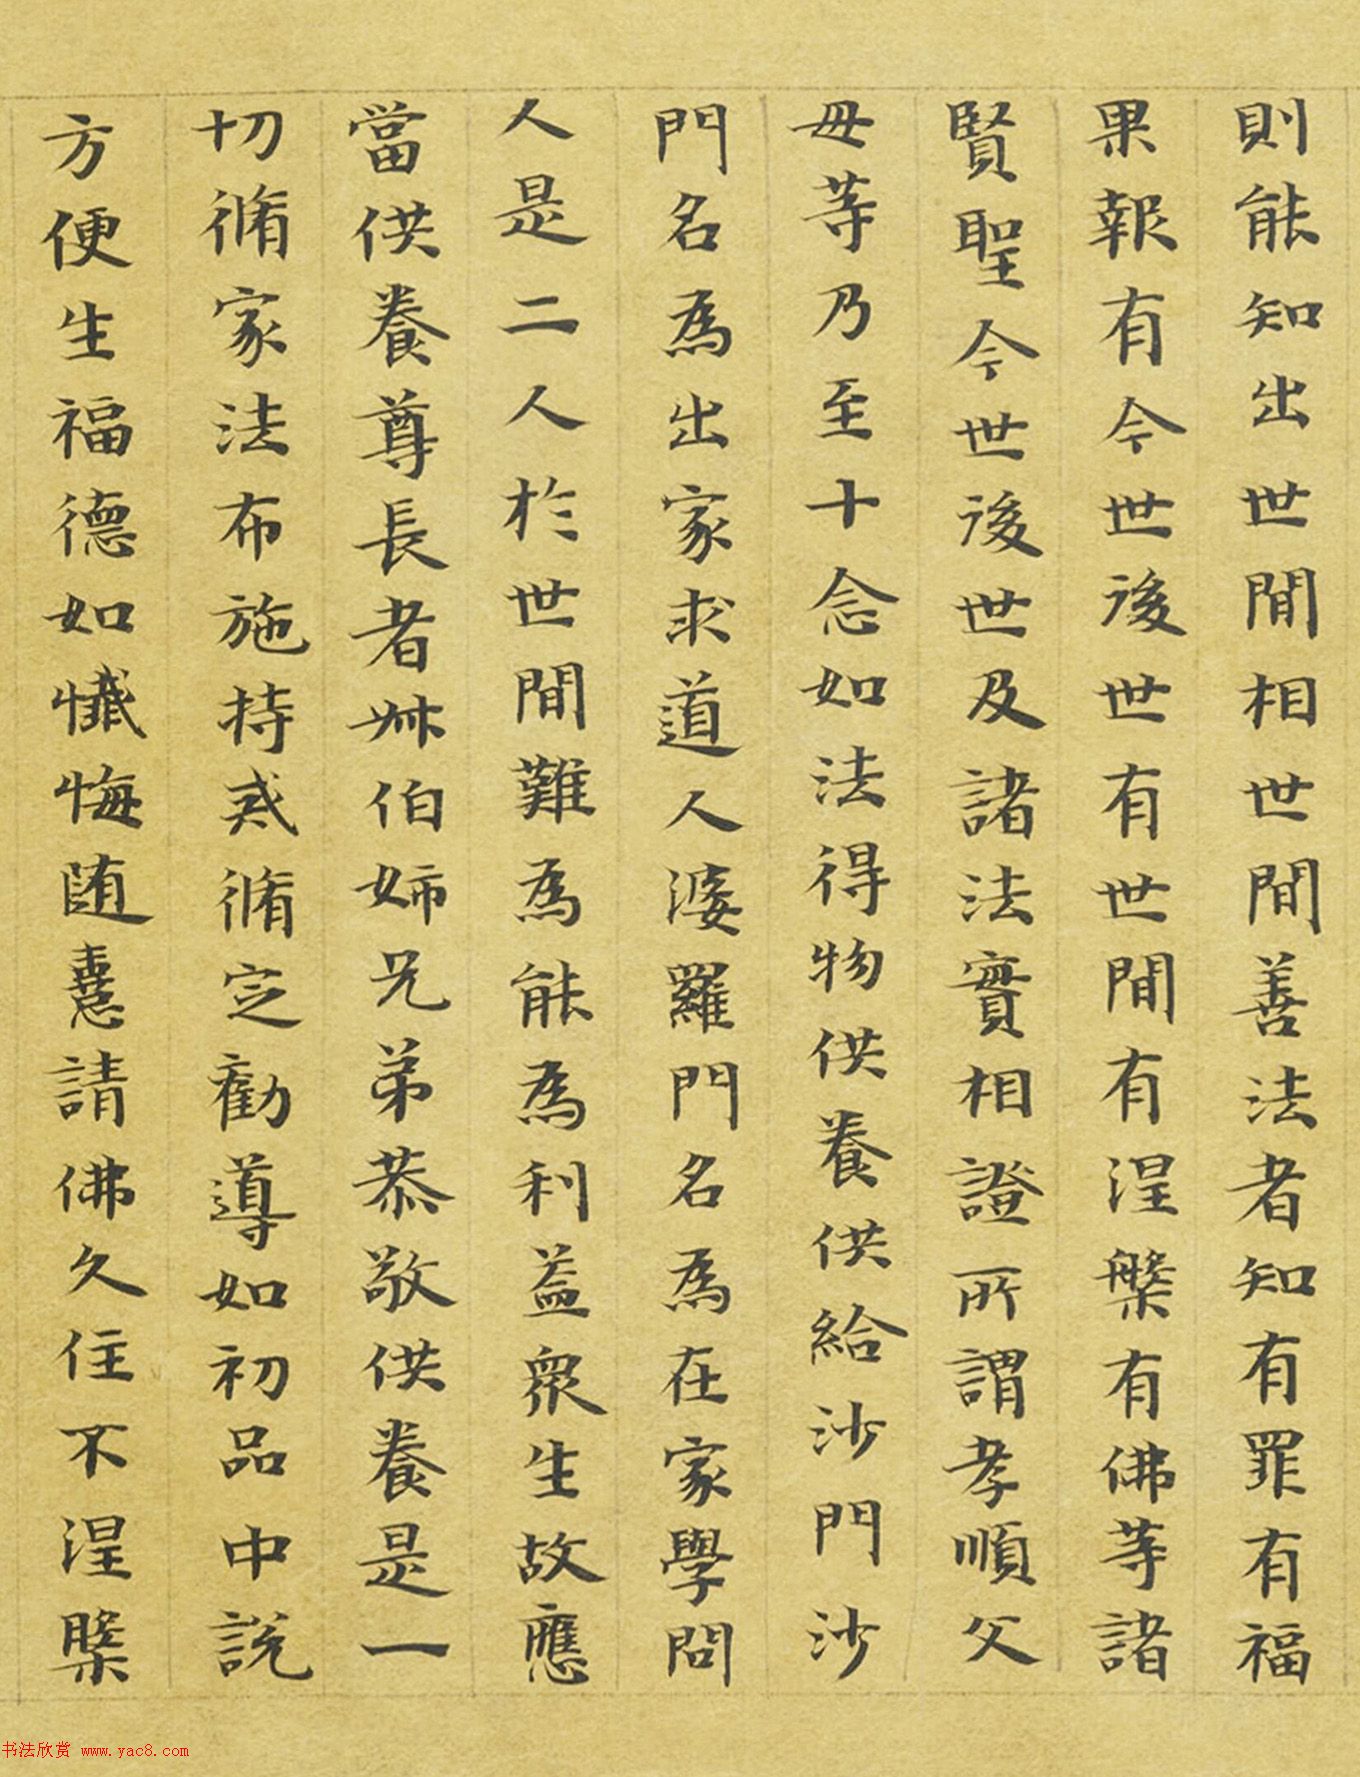 則能知出世間相世間善法者知有罪有福
果報有今世後世有世間有涅槃有佛等諸
賢聖今世後世及諸法實相證所謂孝順父
母等乃至十念如法得物供養供給沙門沙
門名為出家求道人婆羅門名為在家學問
人是二人於世間難為能為利益眾生故應
當供養尊長者叔伯姊兄弟恭敬供養是一
切脩家法布施持戒脩定勸導如初品中說
方便生福德如懺悔隨憙請佛久住不涅槃
书法欣赏 www.yac8.com